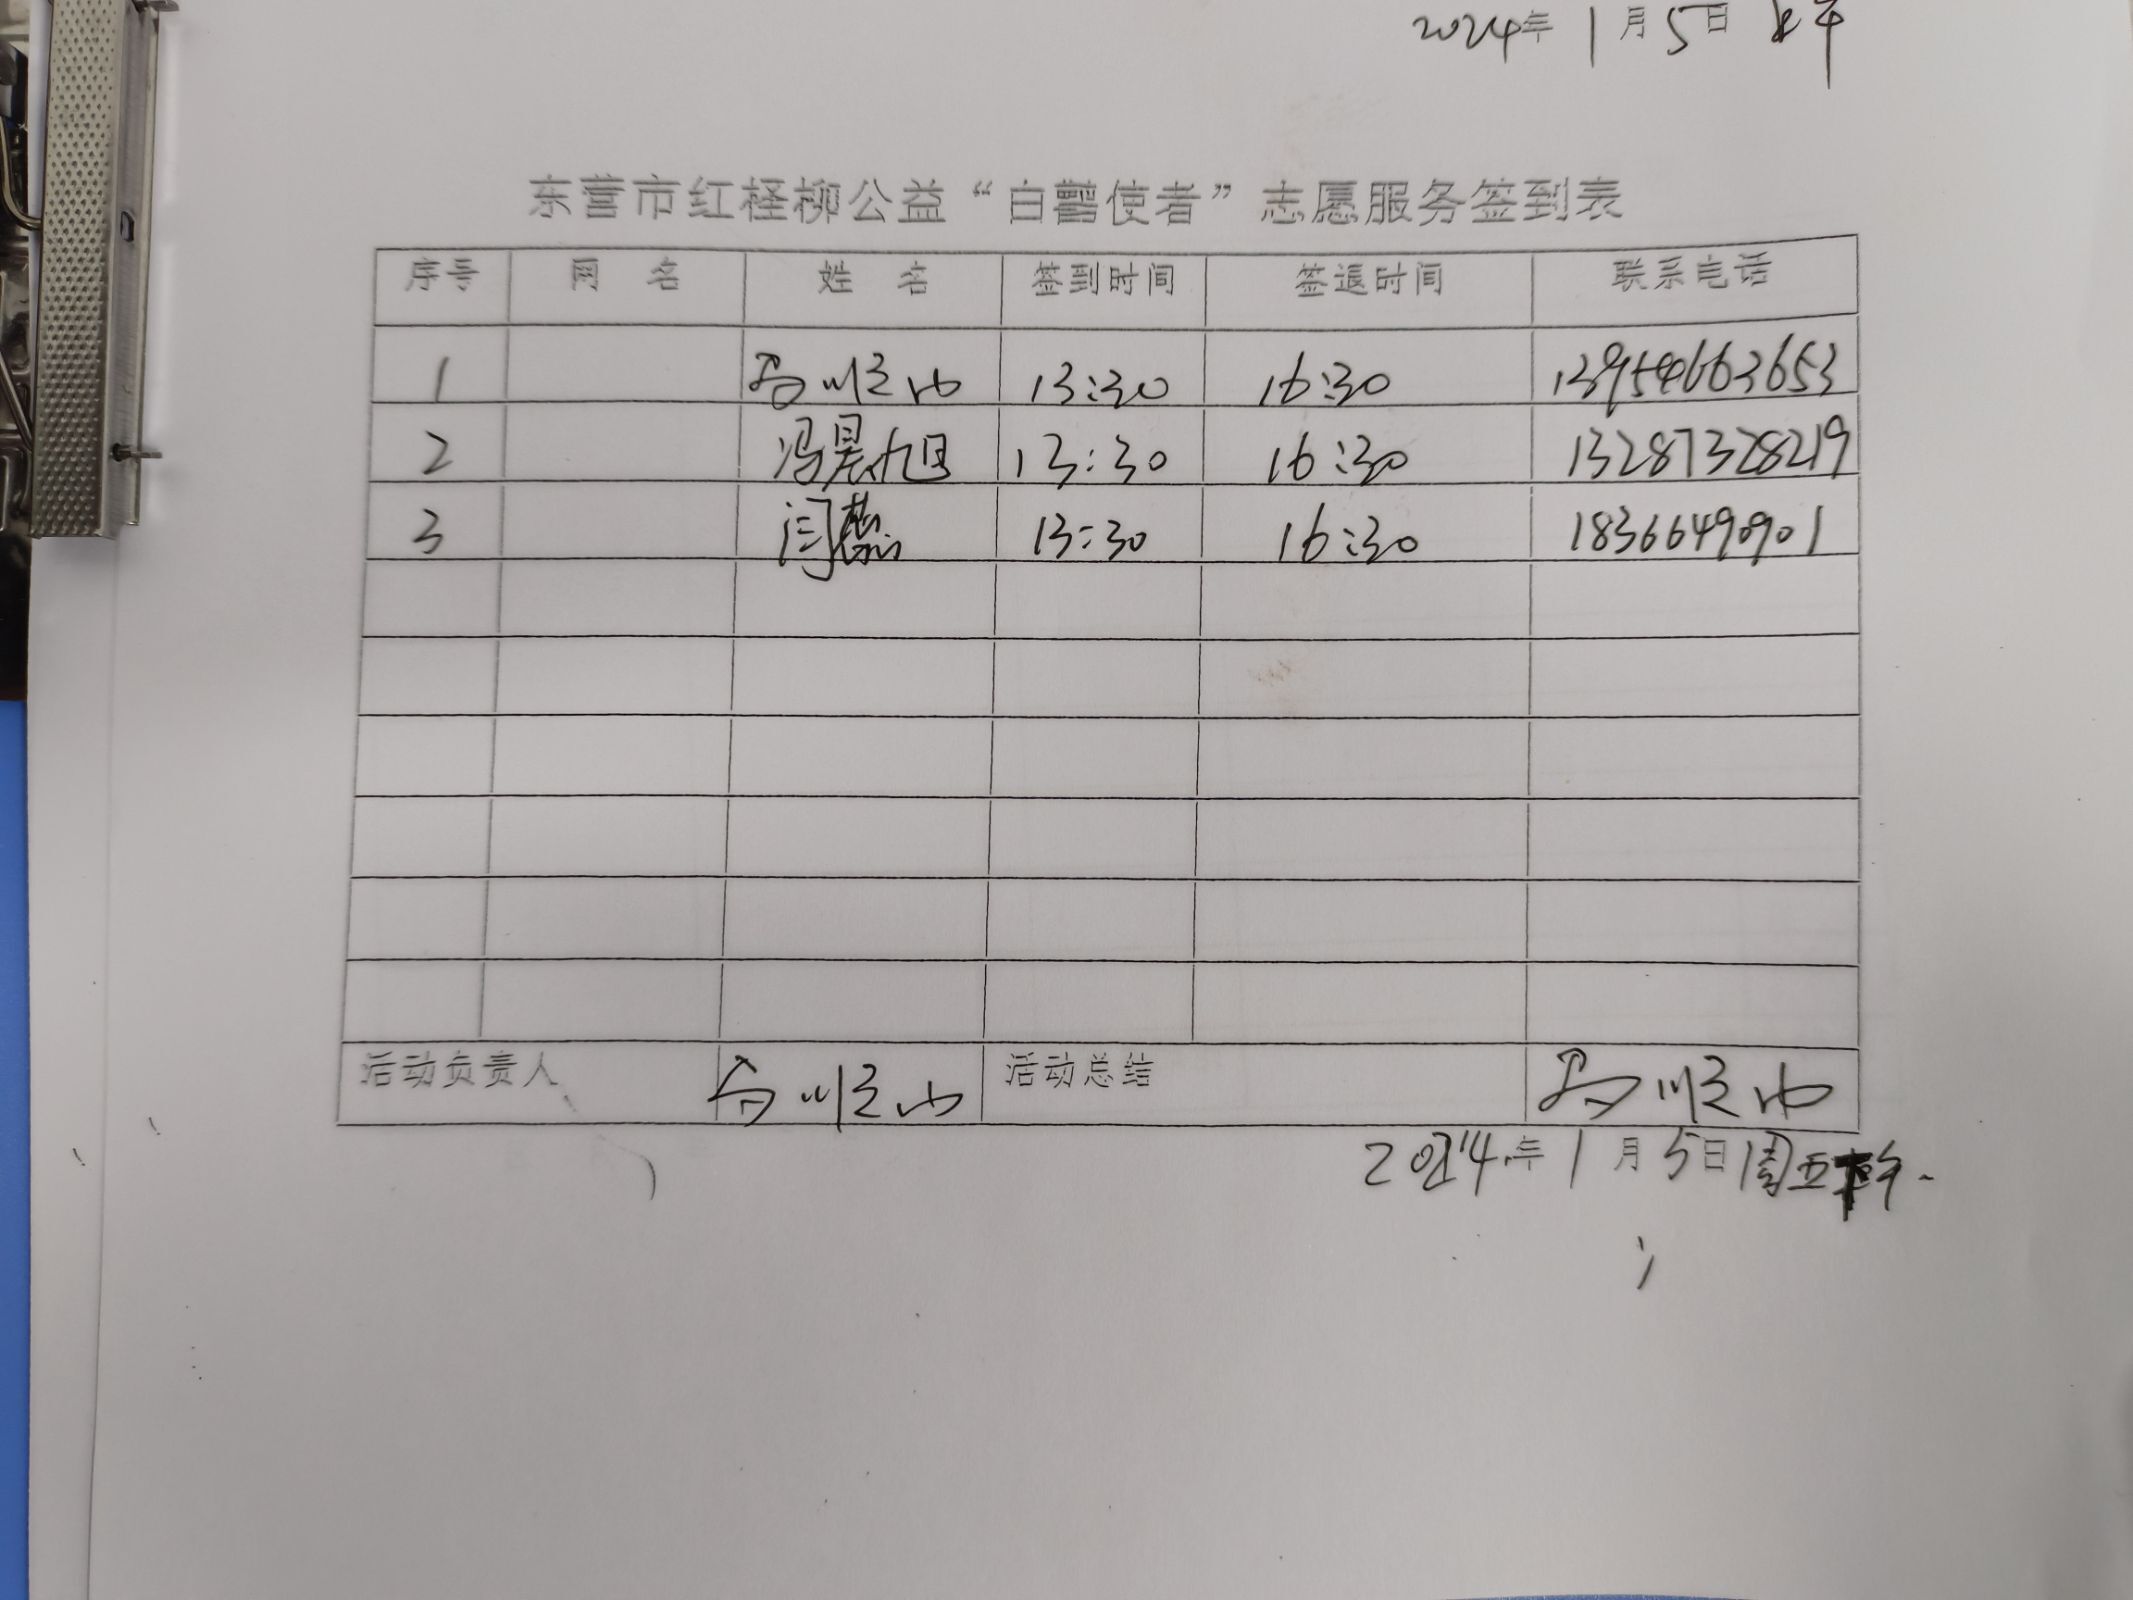 2024年1月5日
东营市红柽柳公益“白鹭使者”志愿服务签到表
序号 网 名 姓 名 签到时间 签退时间 联系电话
1 13:30 16:30 13954663653
2 冯昊旭 13:30 16:30 13287328219
3 闫蕊 13:30 16:30 18366490901
活动负责人 活动总结
2024年1月5日周五